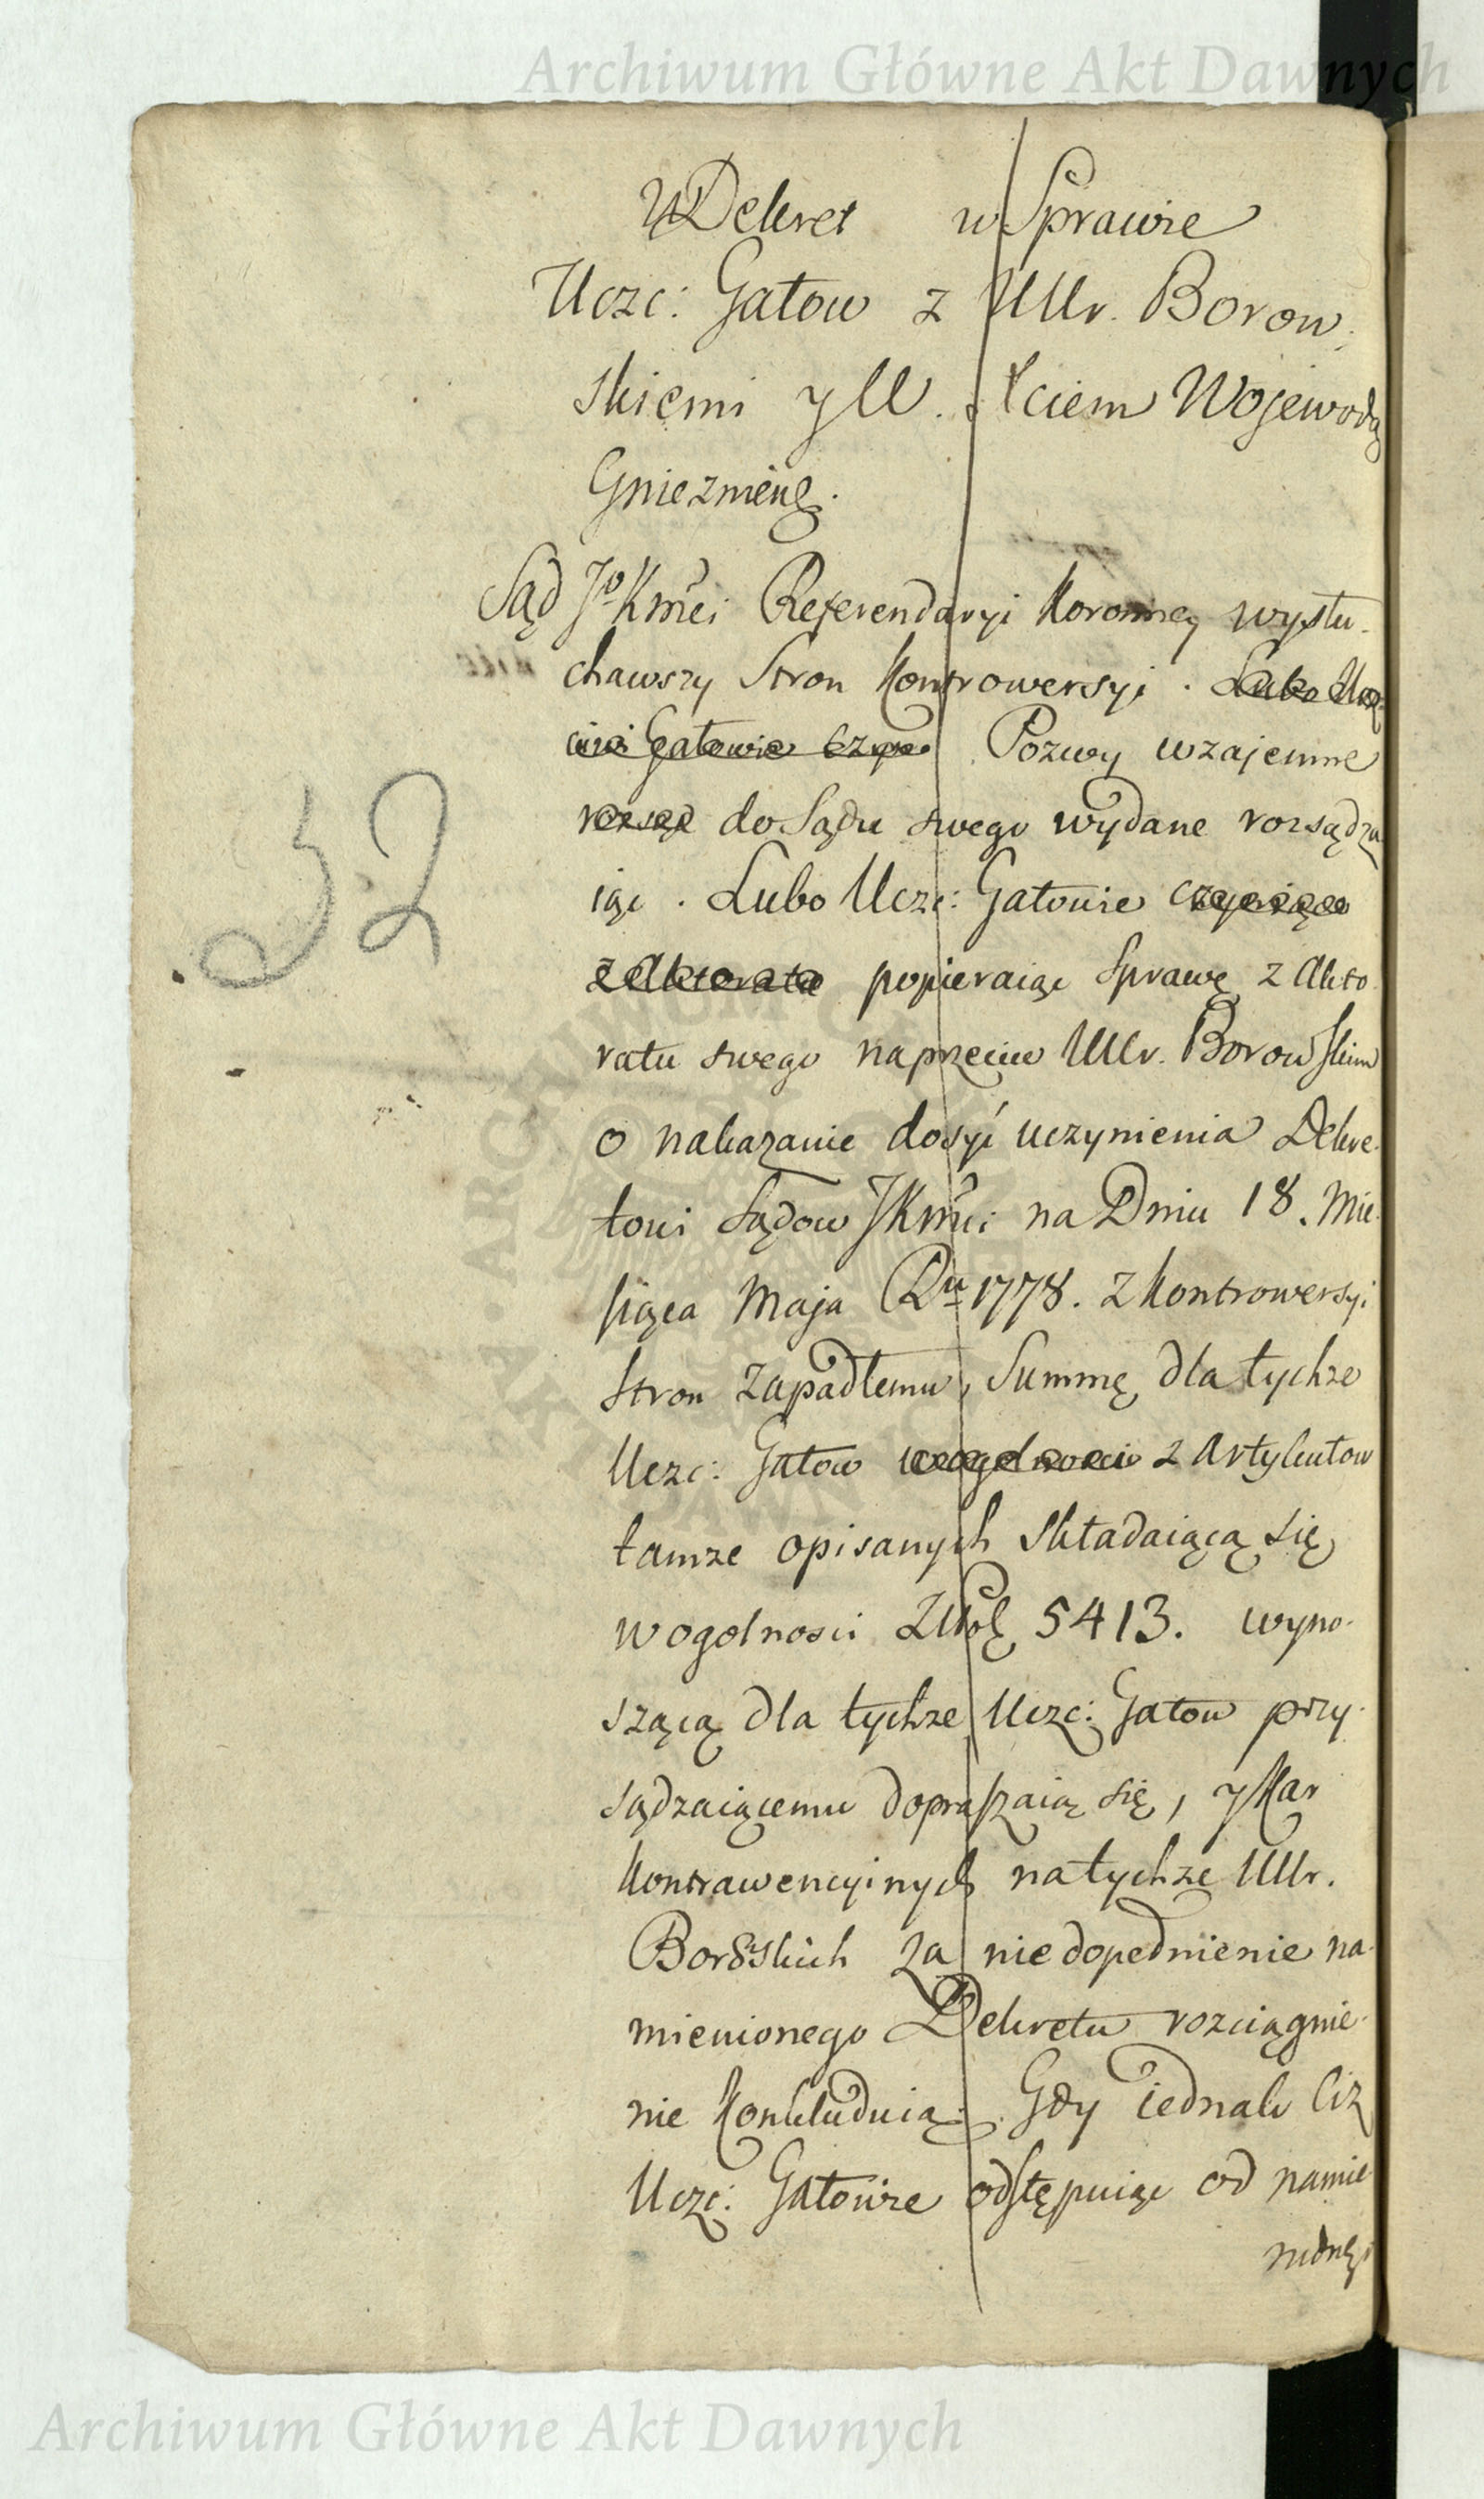 Archiwum Główne Akt Dawnych
Dekret w Sprawie
Uczc: Gałow z UUr. Borow
skiemi y U. kciem Wojewodą
Gniezninę.
Sąd Jº KMci Referendaryi Koronney wysłu
chawszy Stron Kontrowersyi. Lubo Ucz
ciwi Gałowie Pozwy wzajemne
do Sądu swego wydane rozsądza
iąc. Lubo Uczc: Gałowie czyniąc
z Aktoratu popieraiąc Sprawę z Akto
ratu swego naprzeciw UUr. Borowskim
o nakazanie dosyć uczynienia Dekre
towi Sądow JKMci na Dniu 18. Mie
siąca Maja Ru 1778. z Kontrowersyi
Stron zapadłemu, Summę dla tychże
Uczc: Gałow wogolnosci z Artykułow
tamże opisanych składaiącą się
wogolnosci Złłotę 5413. wyno
szącą dla tychże Uczc: Gałow przy
sądzaiącemu dopraszaią się, y Kar
Kontrawencyinych na tychże UUr.
Borskich za niedopełnienie na
mienionego Dekretu rozciągnie
nie Konkluduią. Gdy iednak Ciż
Uczc: Gałowie odstępuiąc od namie
nionego
32
ARCHIWUM GŁÓWNE AKT DAWNYCH
Archiwum Główne Akt Dawnych